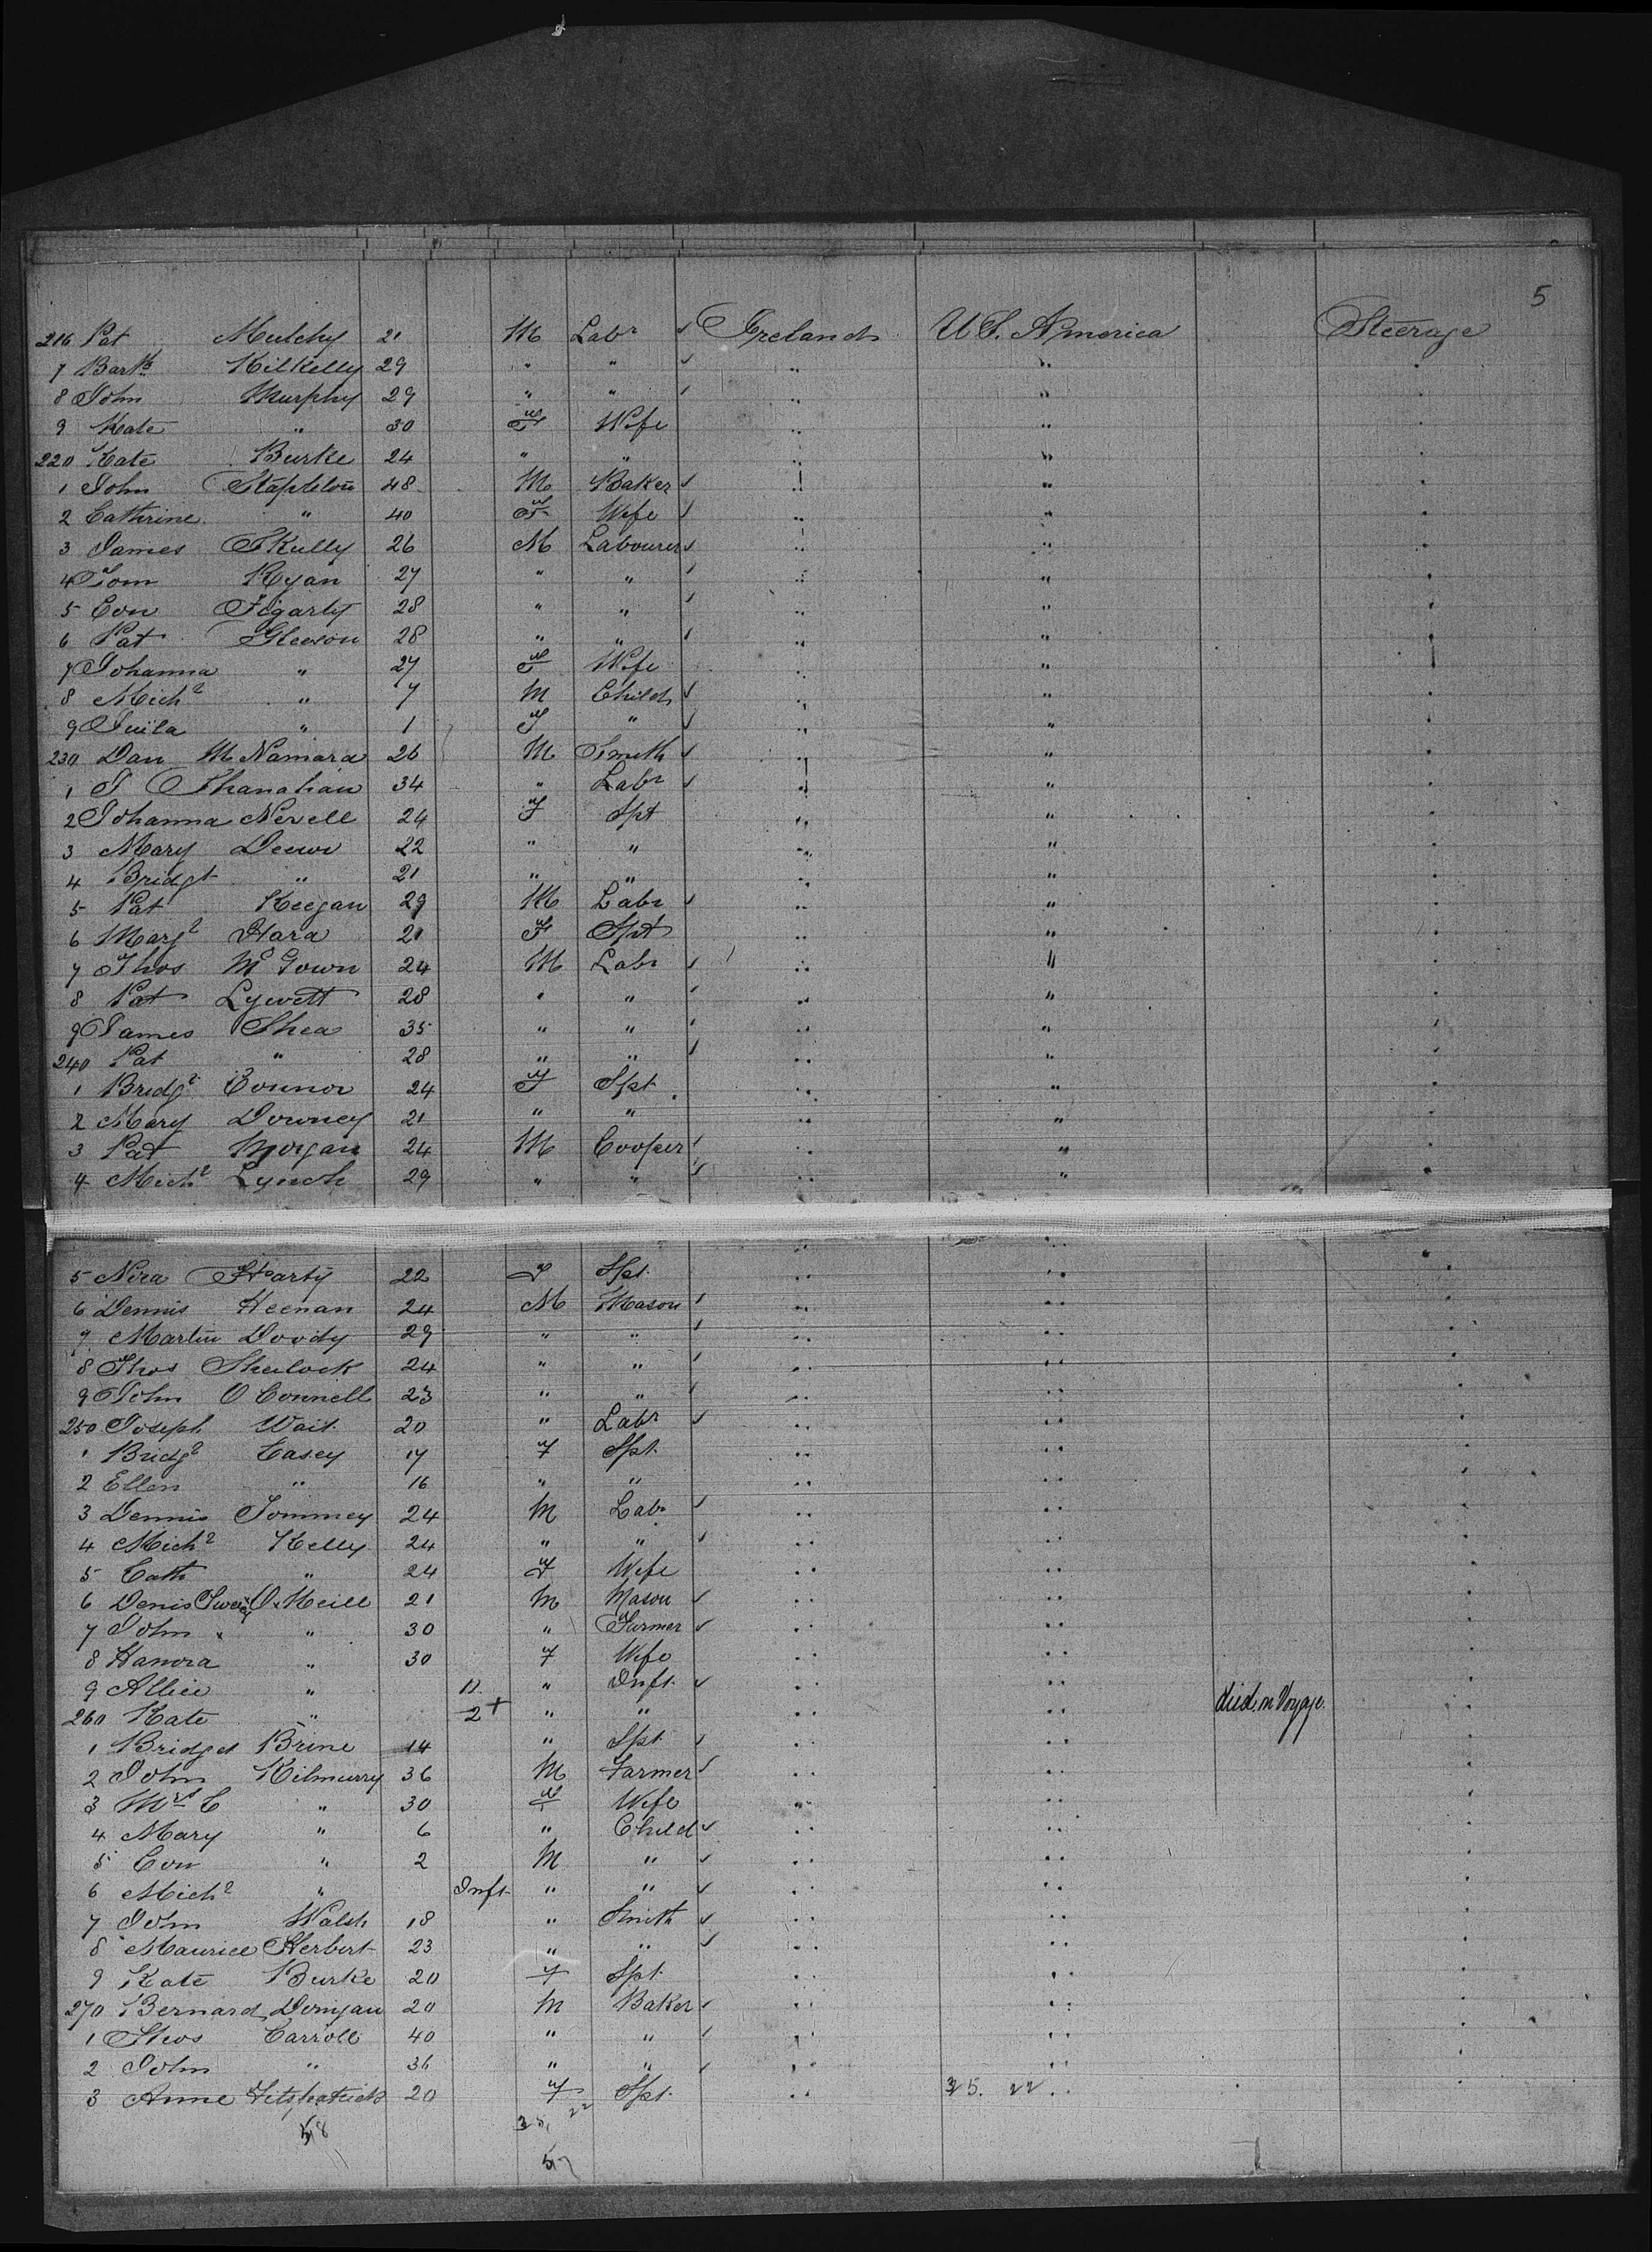 5
216 Pat Mulchy 21 M Labr ✓ Ireland U S. America Steerage
7 Kilkelly 29 " " ✓ " " "
8 John Murphy 29 " " ✓ " " "
9 Kate " 30 F Wife " " "
220 Kate Burke 24 " " " " "
1 John Stapleton 48 M Baker ✓ " " "
2 Cathrine " 40 F Wife ✓ " " "
3 James Skully 26 M Labourer ✓ " " "
4 Tom Ryan 27 " " ✓ " " "
5 Con Figarty 28 " " ✓ " " "
6 Pat Gleeson 28 " " ✓ " " "
7 Johanna " 27 F Wife " " "
8 Michl " 7 M Child ✓ " " "
9 " 1 F " ✓ " " "
230 Dan McNamara 26 M Smith ✓ " " "
1 T Shanahan 34 " Labr ✓ " " "
2 Johanna Nevell 24 F Spt " " "
3 Mary 22 " " " " "
4 Bridgt " 21 " " " " "
5 Pat Keegan 29 M Labr ✓ " " "
6 Margt Hara 21 F Spt " " "
7 Thos Mc Gown 24 M Labr ✓ " " "
8 Pat 28 " " ✓ " " "
9 James Shea 35 " " ✓ " " "
240 Pat " 28 " " ✓ " " "
1 Bridgt Connor 24 F Spt " " "
2 Mary Downey 21 " " " " "
3 Pat Morgan 24 M Cooper ✓ " " "
4 Michl Lynch 29 " " ✓ " " "
5 Harty 22 F Spt " " "
6 Dennis Heenan 24 M Mason ✓ " " "
7 Martin Doody 29 " " ✓ " " "
8 Thos Sherlock 24 " " ✓ " " "
9 John O Connell 23 " " ✓ " " "
250 Joseph Wait 20 " Labr ✓ " " "
1 Bridgt Casey 17 F Spt " " "
2 Ellen " 16 " " " " "
3 Dennis Tommey 24 M Labr ✓ " " "
4 Michl Kelly 24 " " ✓ " " "
5 Cath " 24 F Wife " " "
6 Denis O Neill 21 M Mason ✓ " " "
7 John " 30 " Farmer ✓ " " "
8 Hanora " 30 F Wife " " "
9 Allice " 11 " Inft ✓ " " "
260 Kate " 2 + " " " " died on Voyage "
1 Bridget Brine 14 " Spt ✓ " " "
2 John Kilmurry 36 M Farmer ✓ " " "
3 Mrs C " 30 F Wife " " "
4 Mary " 6 " Child ✓ " " "
5 Con " 2 M " ✓ " " "
6 Michl " Inft " " ✓ " " "
7 John Walsh 18 " Smith ✓ " " "
8 Maurice Herbert 23 " " ✓ " " "
9 Kate Burke 20 F Spt " " "
270 Bernard Donigan 20 M Baker ✓ " " "
1 Thos Carroll 40 " " ✓ " " "
2 John " 36 " " ✓ " " "
3 Anne Fitzpatrick 20 F Spt " 35. 22 "
58 35, 22
57